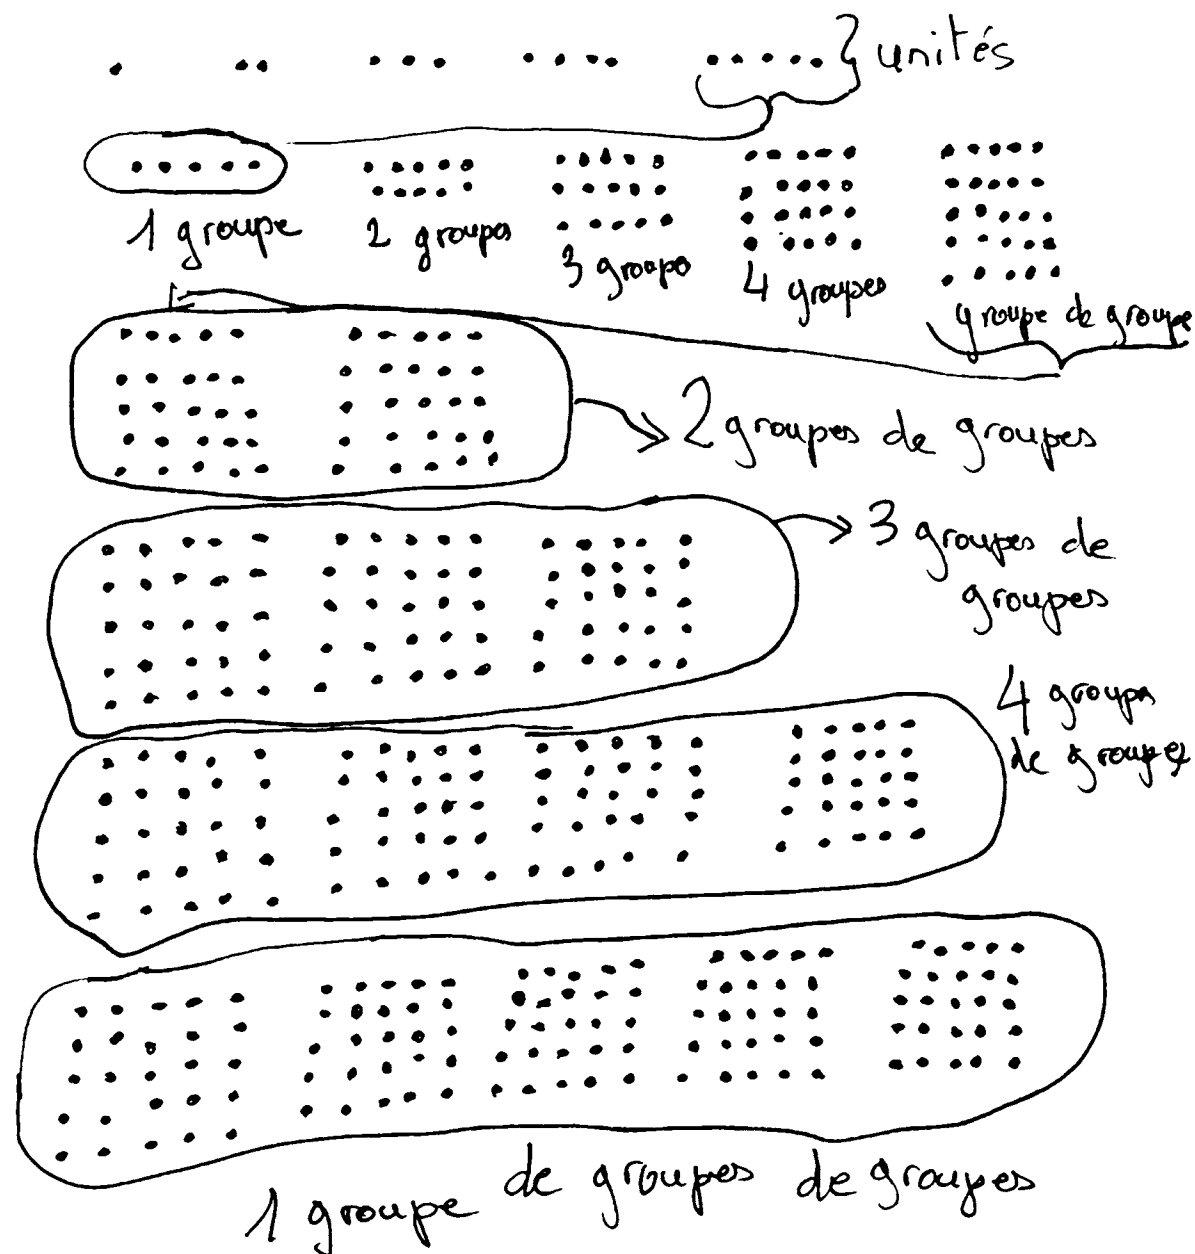 unités
1 groupe
2 groupes
3 groupes
4 groupes
groupe de groupe
2 groupes de groupes
3 groupes de
groupes
4 groupes
de groupes
1 groupe de groupes de groupes